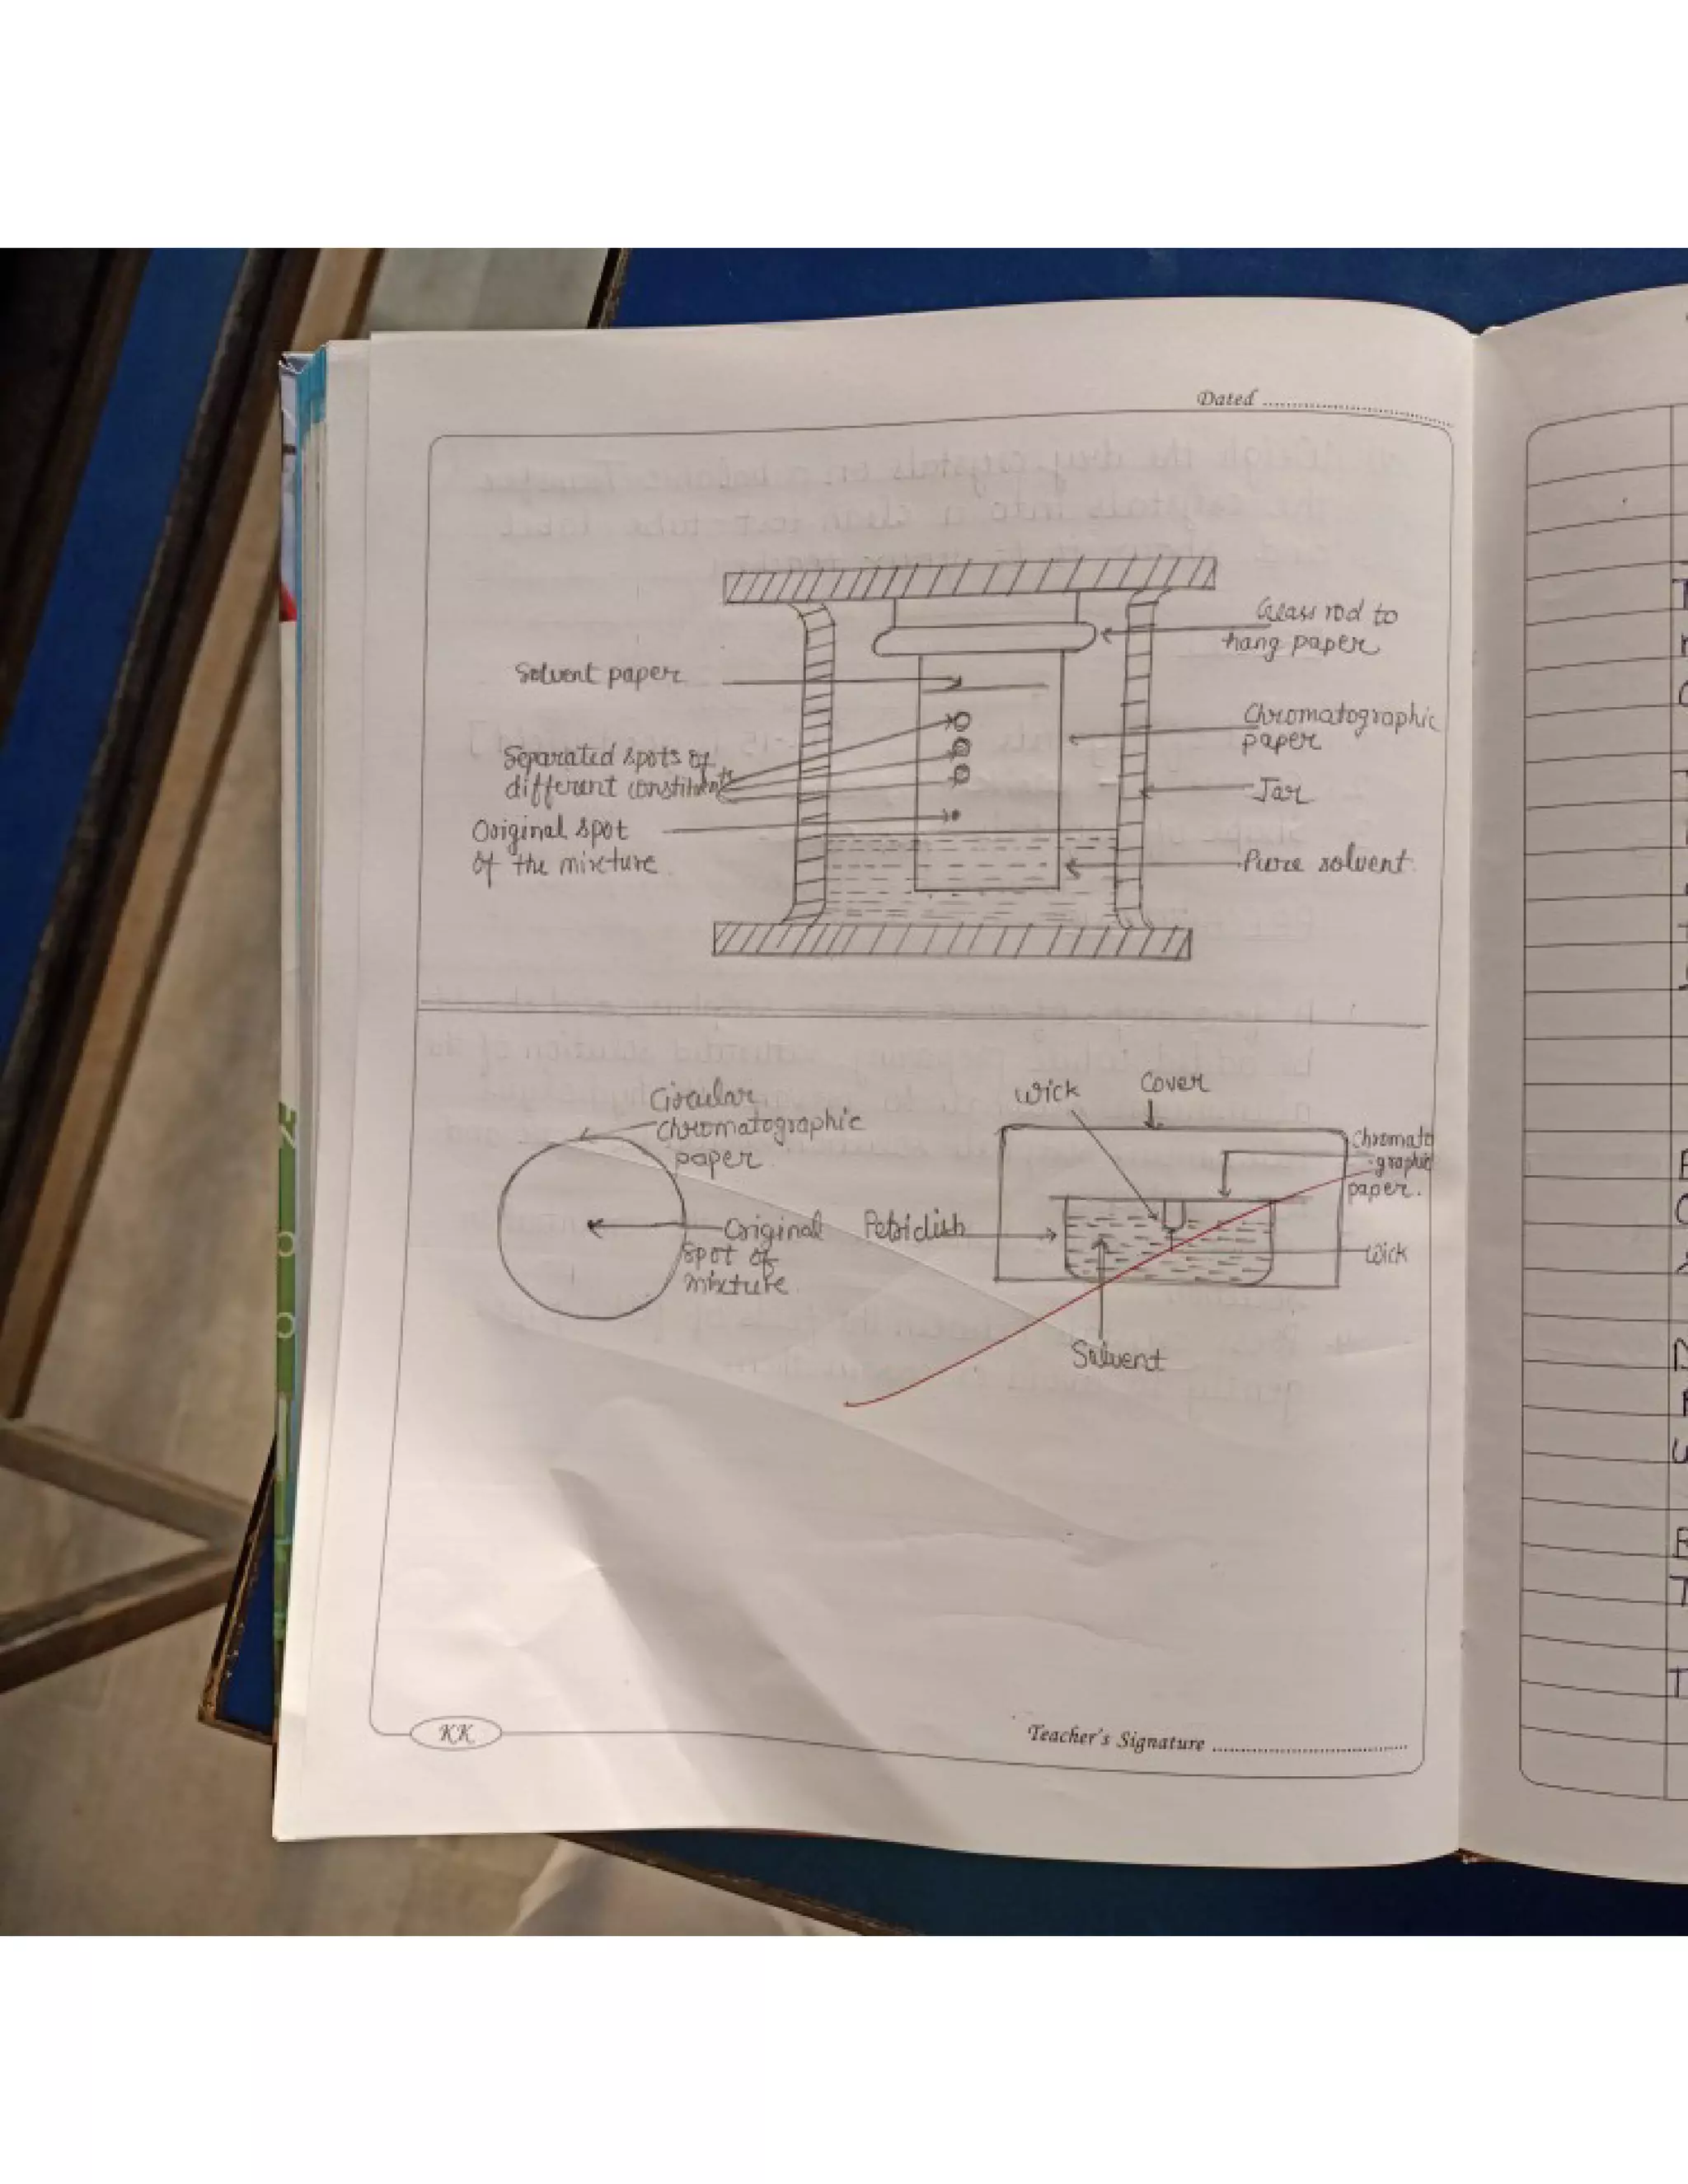 Dated
Glass rod to
hang paper
Solvent paper
Chromatographic
paper
Separated spots of
different constituents
Jar
Original spot
of the mixture
Pure solvent
Circular
chromatographic
paper
Wick
Cover
Chromato
graphic
paper.
Original
spot of
mixture
Petridish
Wick
Solvent
KK
Teacher's Signature